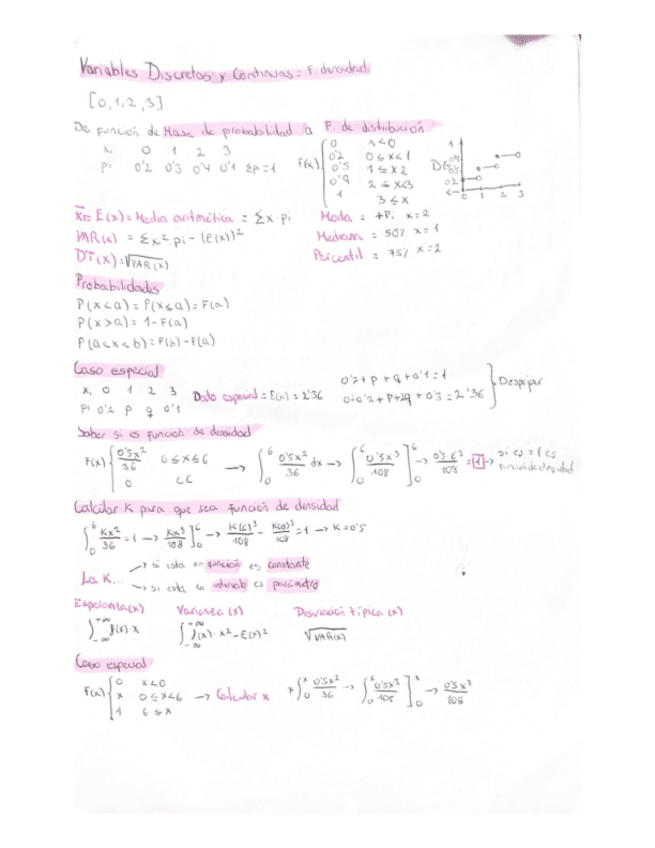 Variables Discretas y Continuas = F. densidad
[0,1,2,3]
De función de Masa de probabilidad a F. de distribución
xi 0 1 2 3
pi 0'2 0'3 0'4 0'1 Σpi=1
F(x) { 0 x<0
0'2 0≤x<1
0'5 1≤x 2
0'9 2≤x<3
1 3≤x
x̄ = E(x) = Media aritmética = Σx·pi
VAR(x) = Σx²·pi - (E(x))²
DT(x) = √VAR(x)
Moda = +Pi x=2
Mediana = 50% x=1
Percentil = 75% x=2
Probabilidades
P(x<a) = P(x≤a) = F(a)
P(x>a) = 1-F(a)
P(a<x<b) = F(b)-F(a)
Caso especial
xi 0 1 2 3
pi 0'2 p q 0'1
Dato especial = E(x) = 2'36
0'2+p+q+0'1=1
0·0'2+p+2q+0'3=2'36
Despejar
Saber si es función de densidad
F(x) { 0'5x²/36 0≤x≤6
0 CC
→ ∫₀⁶ 0'5x²/36 dx → ∫₀⁶ 0'5x³/108 ]₀⁶ → 0'5·6³/108 = 1 → si es = 1 es función de densidad
Calcular K para que sea función de densidad
∫₀⁶ Kx²/36 = 1 → Kx³/108 ]₀⁶ → K(6)³/108 - K(0)³/108 = 1 → K=0'5
La K...
→ si esta en función es constante
→ si esta en intervalo es parámetro
Esperanza(x) Varianza (x) Desviación típica (x)
∫₋∞⁺∞ f(x)·x ∫₋∞⁺∞ f(x)·x²-E(x)² √VAR(x)
Caso especial
F(x) { 0 x<0
x 0≤x<6 → Calcular x
1 6≤x
x ∫₀ˣ 0'5x²/36 → ∫₀ˣ 0'5x³/108 ]₀ˣ → 0'5x³/108